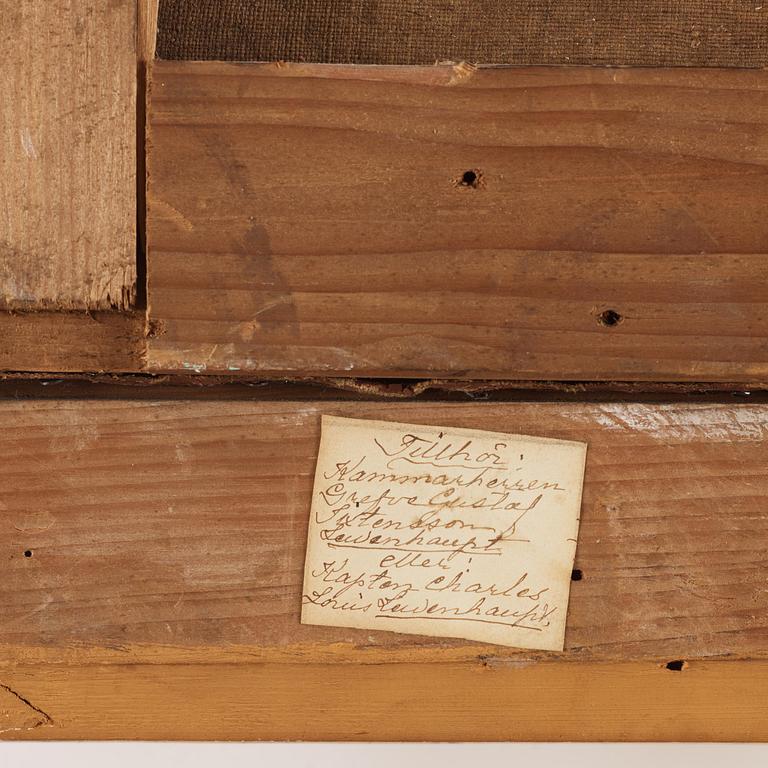 Tillhör:
Kammarherren
Grefve Gustaf
Sixtensson
Lewenhaupt
eller:
Kapten Charles
Louis Lewenhaupt.